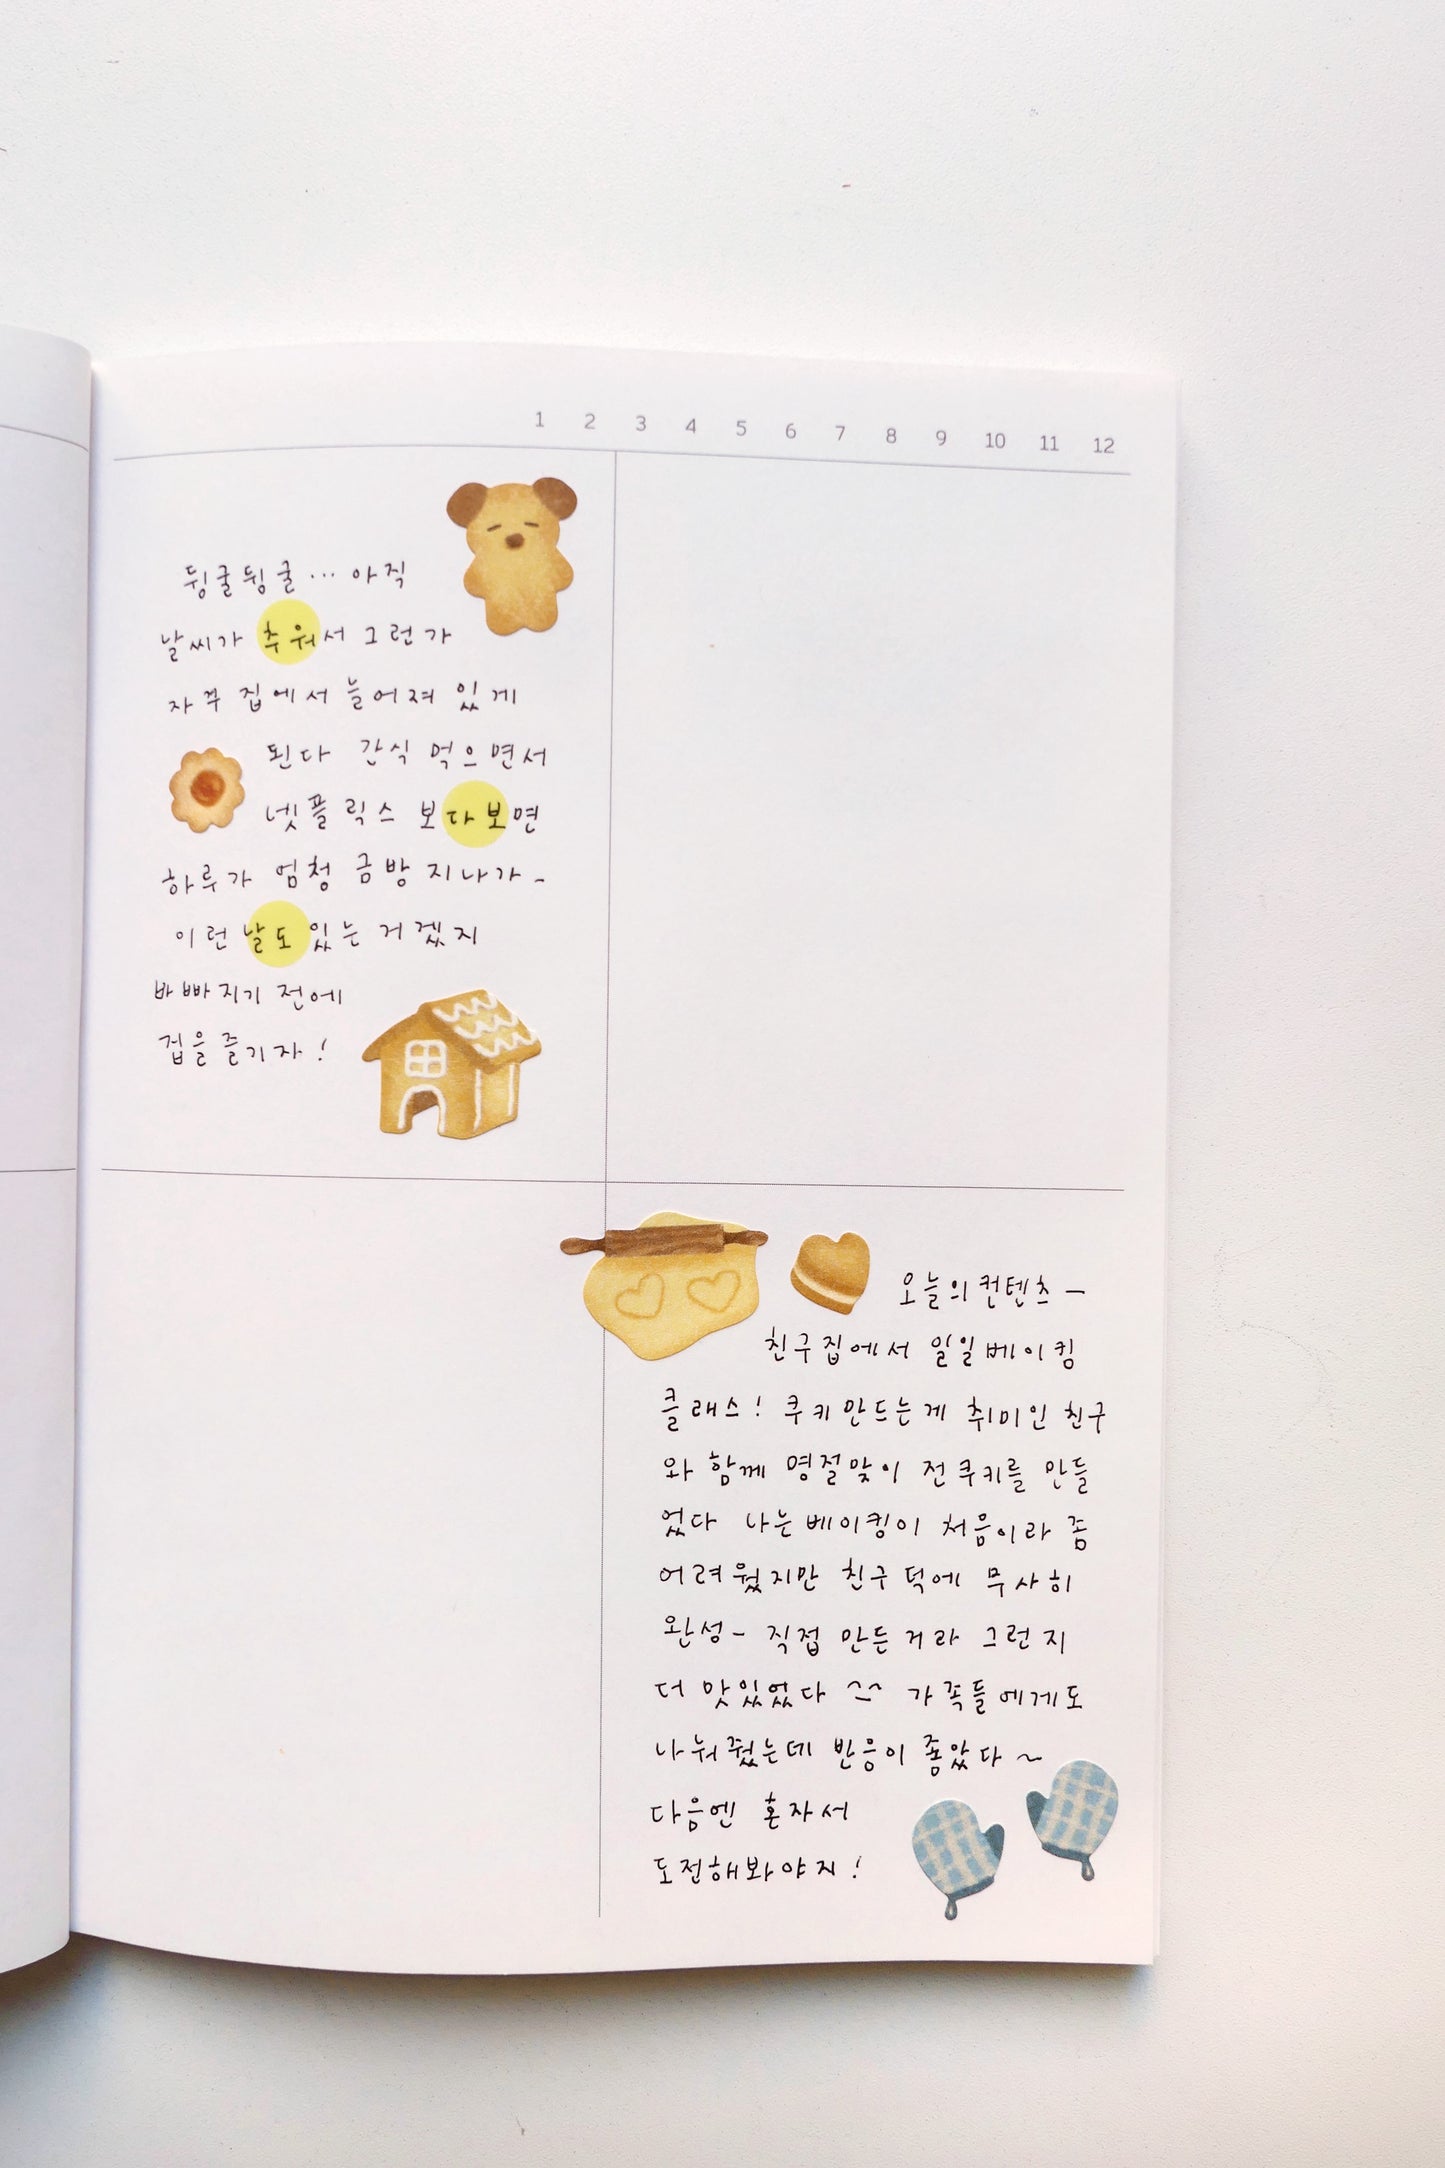 1 2 3 4 5 6 7 8 9 10 11 12
뒹굴뒹굴... 아직
날씨가 추워서 그런가
자꾸 집에서 늘어져 있게
된다 간식 먹으면서
넷플릭스 보다보면
하루가 엄청 금방 지나가-
이런 날도 있는 거겠지
바빠지기 전에
겁을 즐기자!
오늘의 컨텐츠-
친구집에서 일일베이킹
클래스! 쿠키만드는게 취미인 친구
와 함께 명절맞이 전쿠키를 만들
었다 나는 베이킹이 처음이라 좀
어려웠지만 친구 덕에 무사히
완성- 직접 만든거라 그런지
더 맛있었다 ^-^ 가족들에게도
나눠줬는데 반응이 좋았다~
다음엔 혼자서
도전해봐야지!